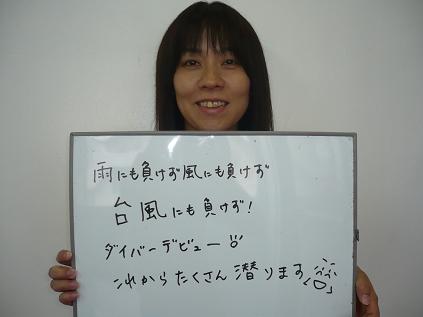 雨にも負けず風にも負けず
台風にも負けず!
ダイバーデビュー
これからたくさん潜ります